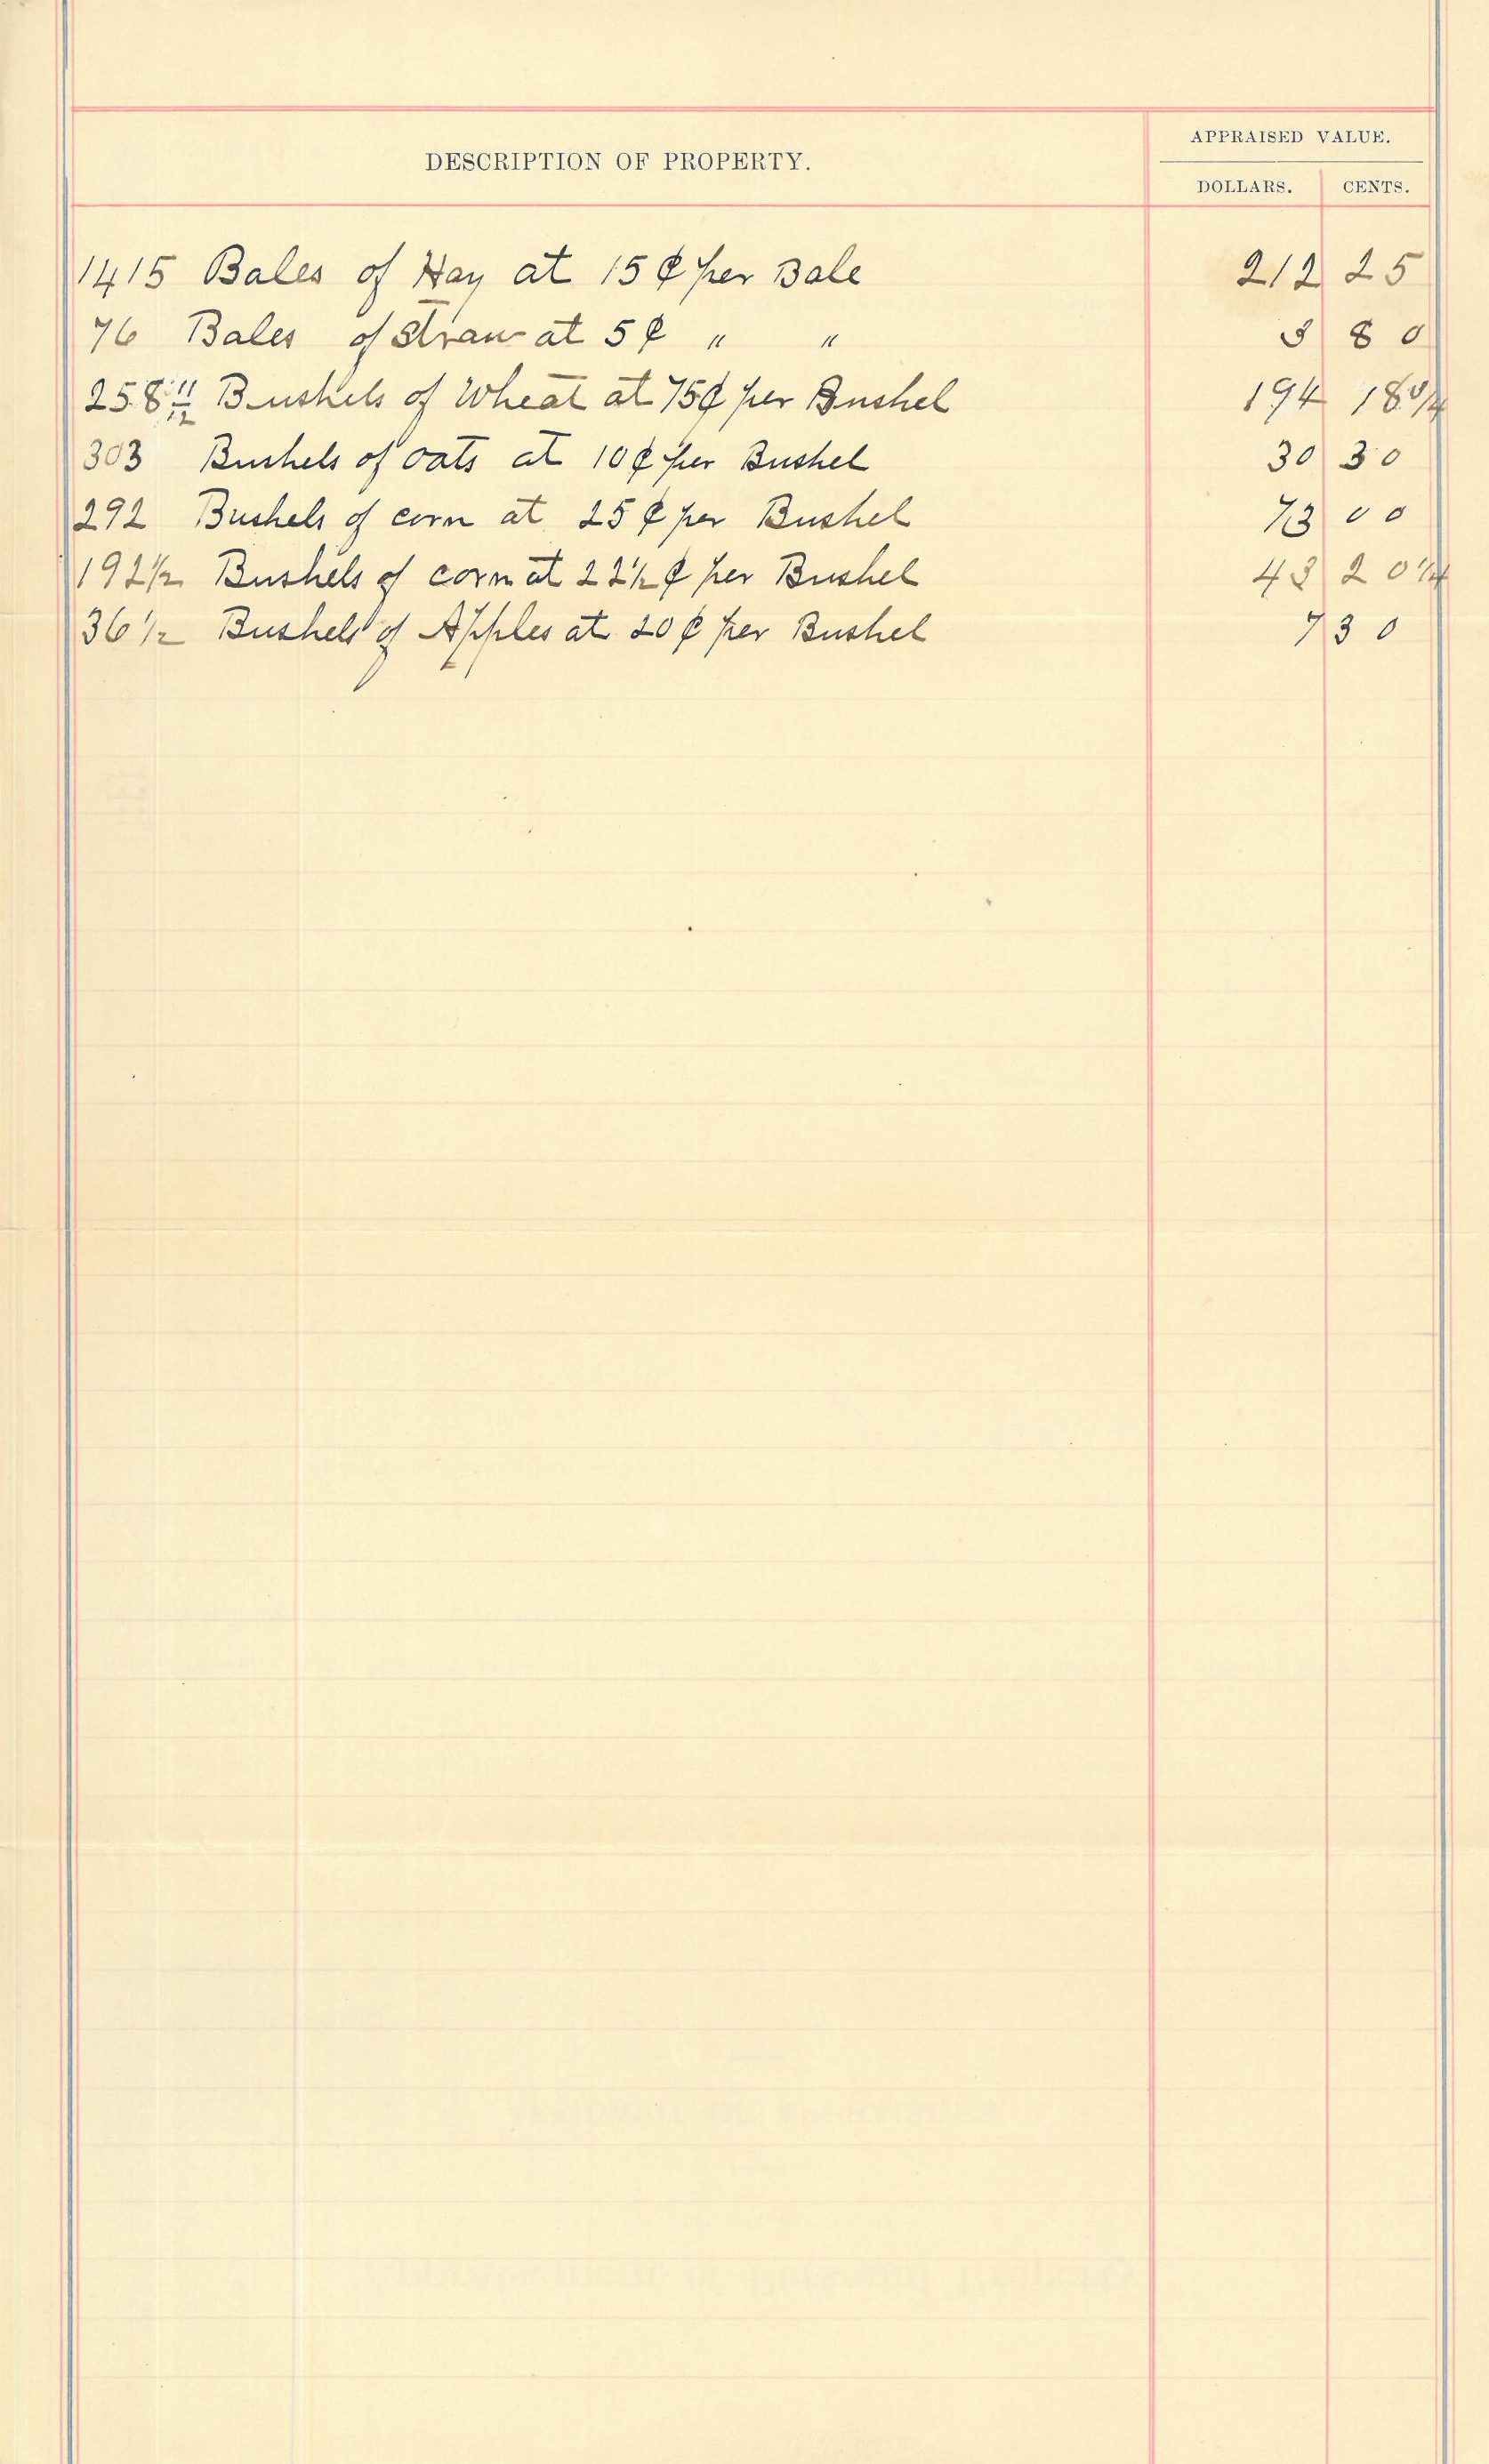 DESCRIPTION OF PROPERTY.
APPRAISED VALUE.
DOLLARS. CENTS.
1415 Bales of Hay at 15 ¢ per Bale 212 25
76 Bales of Straw at 5 ¢ " " 3 80
258 11/12 Bushels of Wheat at 75¢ per Bushel 194 18 3/4
303 Bushels of oats at 10 ¢ per Bushel 30 30
292 Bushels of corn at 25 ¢ per Bushel 73 00
192 1/2 Bushels of corn at 22 1/2 ¢ per Bushel 43 20 1/4
36 1/2 Bushels of Apples at 20 ¢ per Bushel 7 30